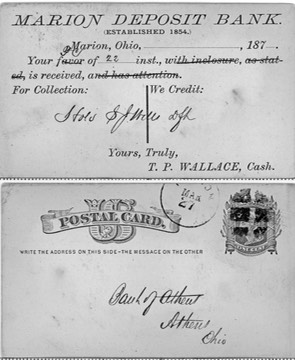 MARION DEPOSIT BANK.
(ESTABLISHED 1854.)
Marion, Ohio, 187 .
Your favor of 22 inst., with inclosure, as stat-
ed, is received, and has attention.
For Collection: We Credit:
Yours, Truly,
T. P. WALLACE, Cash.
POSTAL CARD.
MAR
27
WRITE THE ADDRESS ON THIS SIDE - THE MESSAGE ON THE OTHER
ONE CENT
Bank of Athens
Athens
Ohio